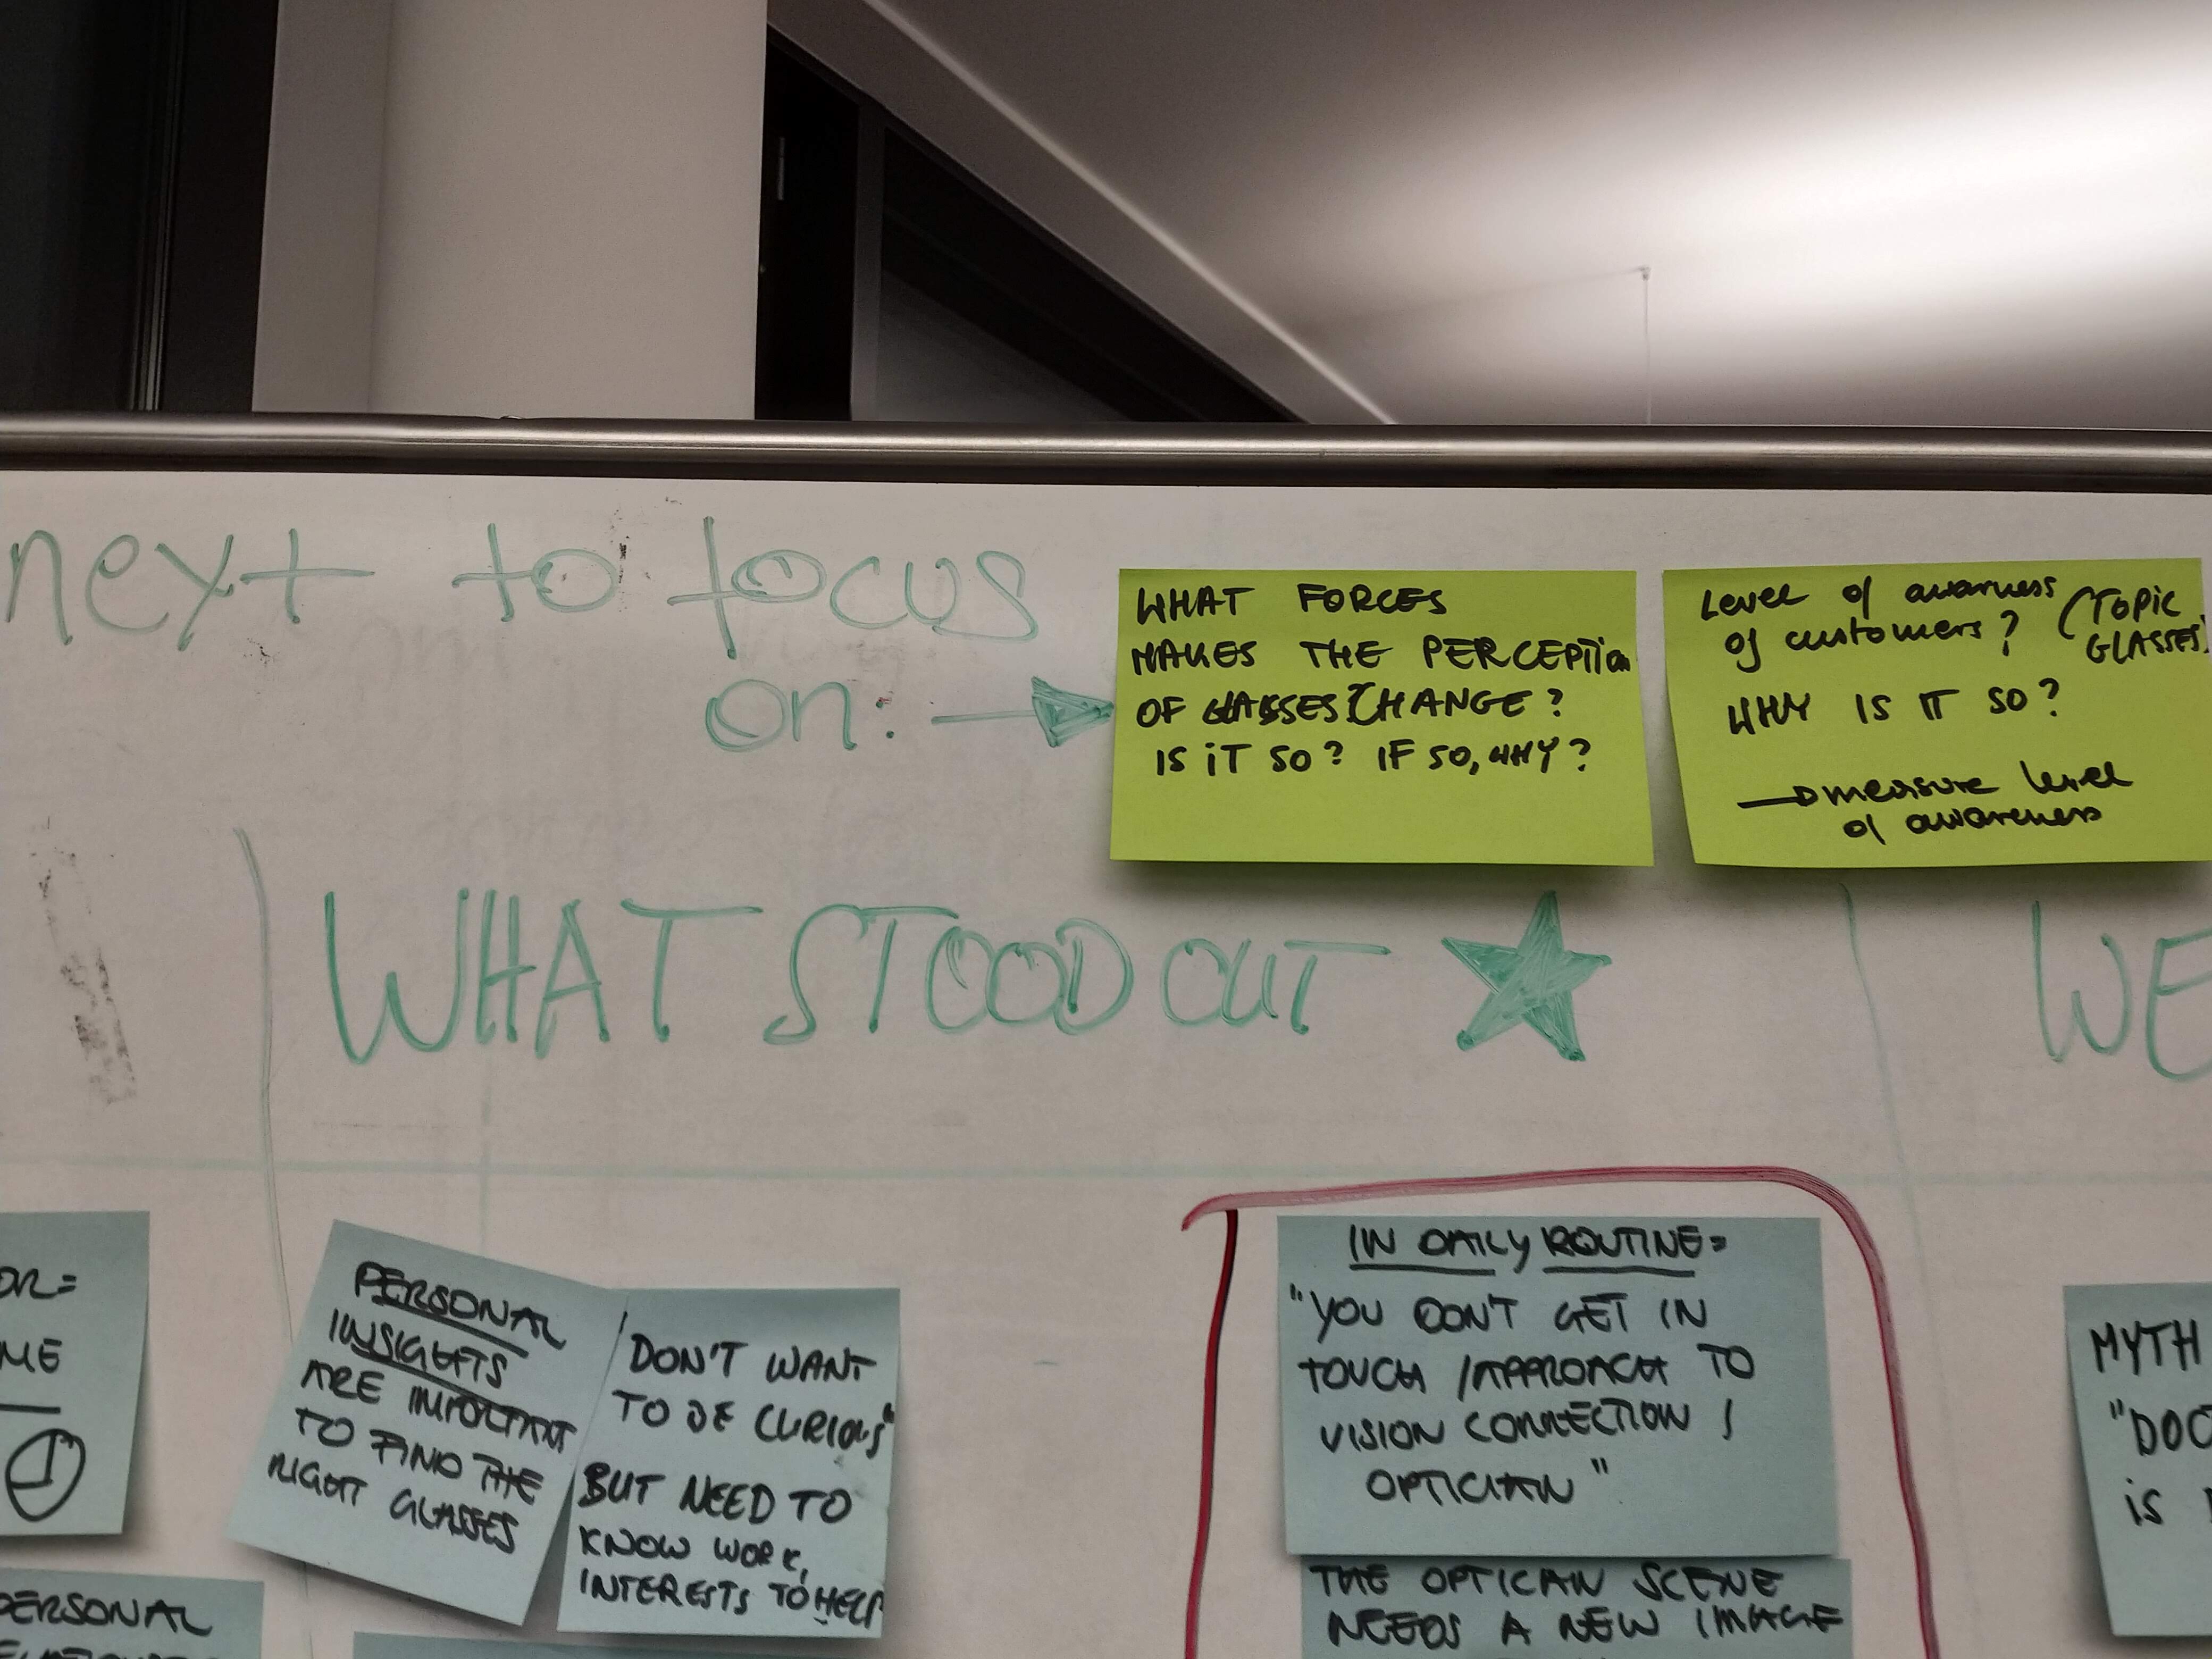 next to focus
on:
WHAT FORCES
MAKES THE PERCEPTION
OF GLASSES CHANGE?
IS iT SO? IF SO, WHY?
Level of awarness
of customers? (TOPIC
GLASSES)
WHY IS IT SO?
measure level
of awareness
WHAT STOOD OUT
WE
OR=
ME
1
PERSONAL
INSIGHTS
ARE IMPORTANT
TO FIND THE
RIGHT GLASSES
DON'T WANT
TO BE CURIOUS"
BUT NEED TO
KNOW WORK,
INTERESTS TO HELP
IN DAILY ROUTINE=
"YOU DON'T GET IN
TOUCH / APPROACH TO
VISION CORRECTION /
OPTICIAN"
THE OPTICIAN SCENE
NEEDS A NEW IMAGE
MYTH
"DOC
is
PERSONAL